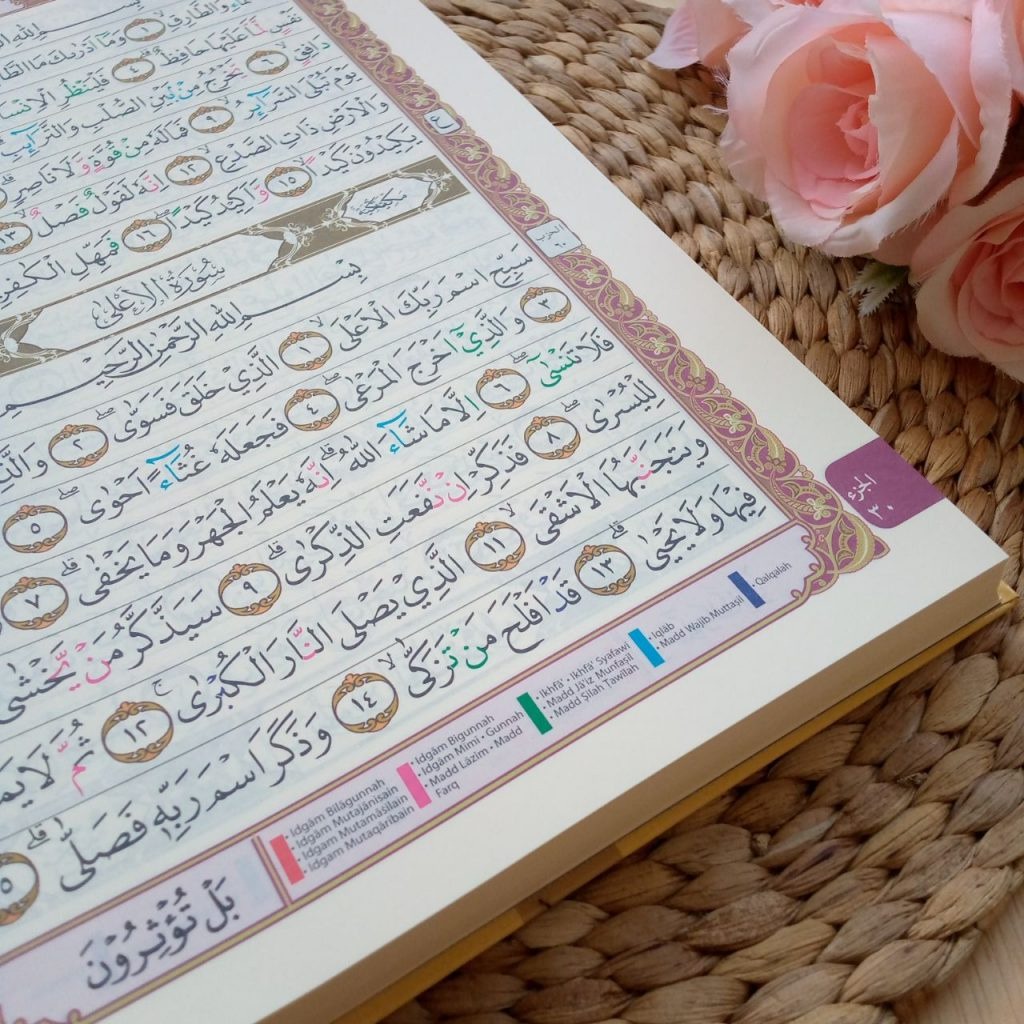 بِسْمِ اللّٰهِ
وَالطَّارِقِۙ ۝١ وَمَآ اَدْرٰىكَ مَا الطَّا
نَفْسٍ لَّمَّا عَلَيْهَا حَافِظٌۗ ۝٤ فَلْيَنْظُرِ الْاِنْسَا
دَافِقٍۙ ۝٦ يَّخْرُجُ مِنْۢ بَيْنِ الصُّلْبِ وَالتَّرَاۤىِٕبِۗ
يَوْمَ تُبْلَى السَّرَاۤىِٕرُۙ ۝٩ فَمَا لَهٗ مِنْ قُوَّةٍ وَّلَا نَاصِرٍۗ
وَالْاَرْضِ ذَاتِ الصَّدْعِۙ ۝١٢ اِنَّهٗ لَقَوْلٌ فَصْلٌۙ ۝١٣
يَكِيْدُوْنَ كَيْدًاۙ ۝١٥ وَّاَكِيْدُ كَيْدًاۖ ۝١٦ فَمَهِّلِ الْكٰفِرِ
سُوْرَةُ الْاَعْلٰى
مكية
بِسْمِ اللّٰهِ الرَّحْمٰنِ الرَّحِيْمِ
سَبِّحِ اسْمَ رَبِّكَ الْاَعْلَىۙ ۝١ الَّذِيْ خَلَقَ فَسَوّٰىۖ ۝٢ وَالَّذِ
۝٣ وَالَّذِيْٓ اَخْرَجَ الْمَرْعٰىۖ ۝٤ فَجَعَلَهٗ غُثَاۤءً اَحْوٰىۖ ۝٥
فَلَا تَنْسٰىٓۖ ۝٦ اِلَّا مَا شَاۤءَ اللّٰهُۗ اِنَّهٗ يَعْلَمُ الْجَهْرَ وَمَا يَخْفٰىۗ ۝٧
لِلْيُسْرٰىۖ ۝٨ فَذَكِّرْ اِنْ نَّفَعَتِ الذِّكْرٰىۗ ۝٩ سَيَذَّكَّرُ مَنْ يَّخْشٰى
وَيَتَجَنَّبُهَا الْاَشْقَىۙ ۝١١ الَّذِيْ يَصْلَى النَّارَ الْكُبْرٰىۚ ۝١٢ ثُمَّ لَا يَمُ
فِيْهَا وَلَا يَحْيٰىۗ ۝١٣ قَدْ اَفْلَحَ مَنْ تَزَكّٰىۙ ۝١٤ وَذَكَرَ اسْمَ رَبِّهٖ فَصَلّٰىۗ
بَلْ تُؤْثِرُوْنَ
الجزء
٣٠
• Idgām Bilāgunnah
• Idgām Mutajānisain
• Idgam Mutamāṡilain
• Idgam Mutaqāribain
• Idgām Bigunnah
• Idgām Mimi • Gunnah
• Madd Lāzim • Madd
Farq
• Ikhfā' • Ikhfā' Syafawī
• Madd Jā'iz Munfaṣil
• Madd Ṣilah Ṭawīlah
• Iqlāb
• Madd Wajib Muttaṣil
• Qalqalah